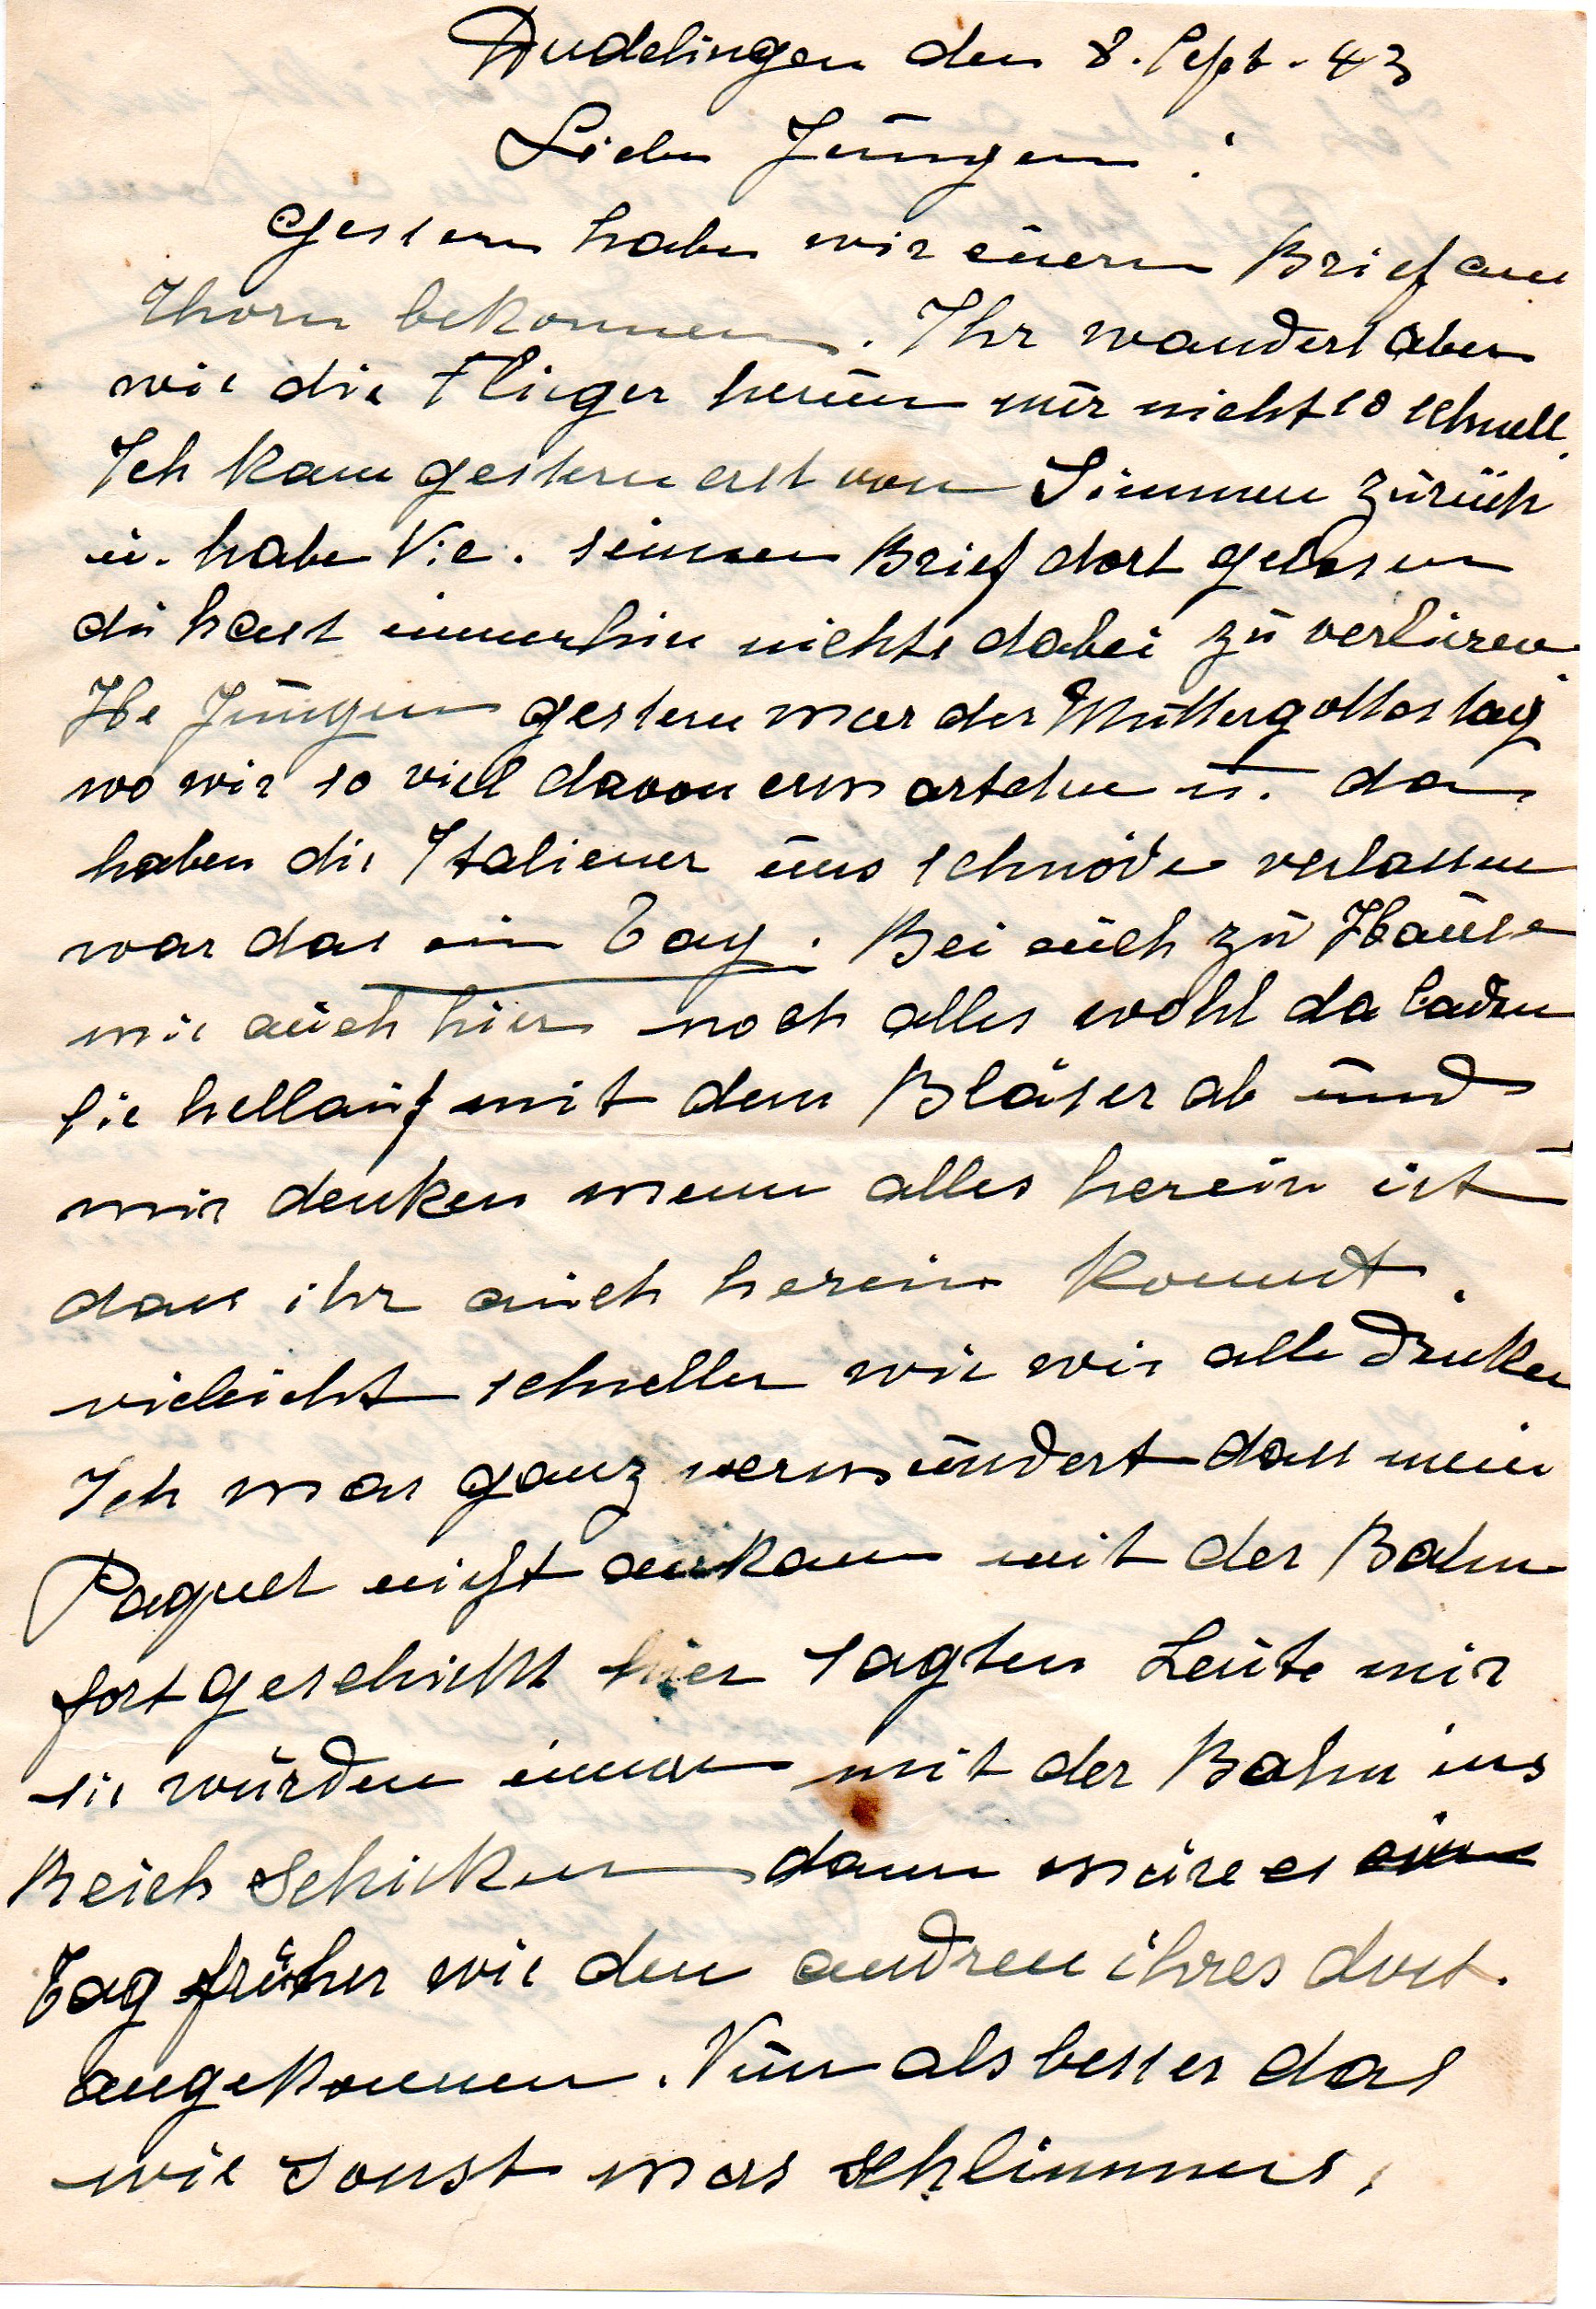 Dudelingen den 8. Sept. 43
Liebe Jungen!
Gestern habe wir euern Brief aus
Thorn bekommen. Ihr wandert aber
wie die Flieger herum nur nicht so schnell.
Ich kam gestern erst von Simmern zurück
u. habe Vic. seinen Brief dort gelesen
du hast immerhin nichts dabei zu verlieren.
He Jungen gestern war der Muttergottestag
wo wir so viel davon erwartehn u. da
haben die Italiener uns schnöde verlassen
war das ein Tag. Bei euch zu Hause
wie auch hier noch alles wohl da laden
sie hellauf mit dem Bläser ab und
wir denken wenn alles herein ist
dass ihr auch herein kommt.
vieleicht schneller wie wir alle denken
Ich war ganz verwundert dass mein
Paquet nicht ankam mit der Bahn
fortgeschickt hier sagten Leute mir
sie würden immer mit der Bahn ins
Reich Schicken dann wäre es
Tag früher wie den andren ihres dort.
angekommen. Nun als besser das
wie sonst was schlimmers,